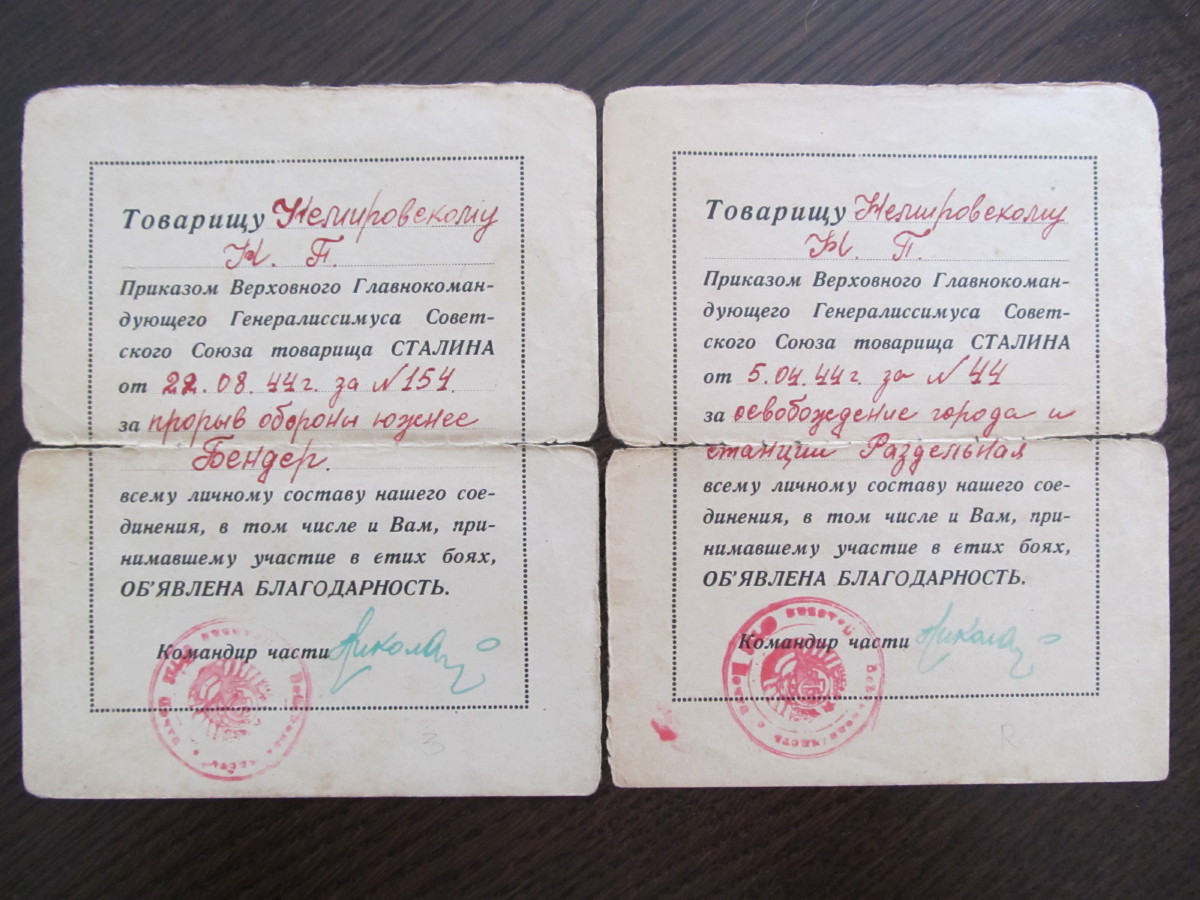 Товарищу Немировскому
Н. П.
Приказом Верховного Главнокоман-
дующего Генералиссимуса Совет-
ского Союза товарища СТАЛИНА
от 22.08.44г. за №154
за прорыв обороны южнее
Бендер.
всему личному составу нашего сое-
динения, в том числе и Вам, при-
нимавшему участие в етих боях,
ОБ’ЯВЛЕНА БЛАГОДАРНОСТЬ.
Командир части
Товарищу Немировскому
Н. П.
Приказом Верховного Главнокоман-
дующего Генералиссимуса Совет-
ского Союза товарища СТАЛИНА
от 5.04.44г. за №44
за освобождение города и
станции Раздельная
всему личному составу нашего сое-
динения, в том числе и Вам, при-
нимавшему участие в етих боях,
ОБ’ЯВЛЕНА БЛАГОДАРНОСТЬ.
Командир части